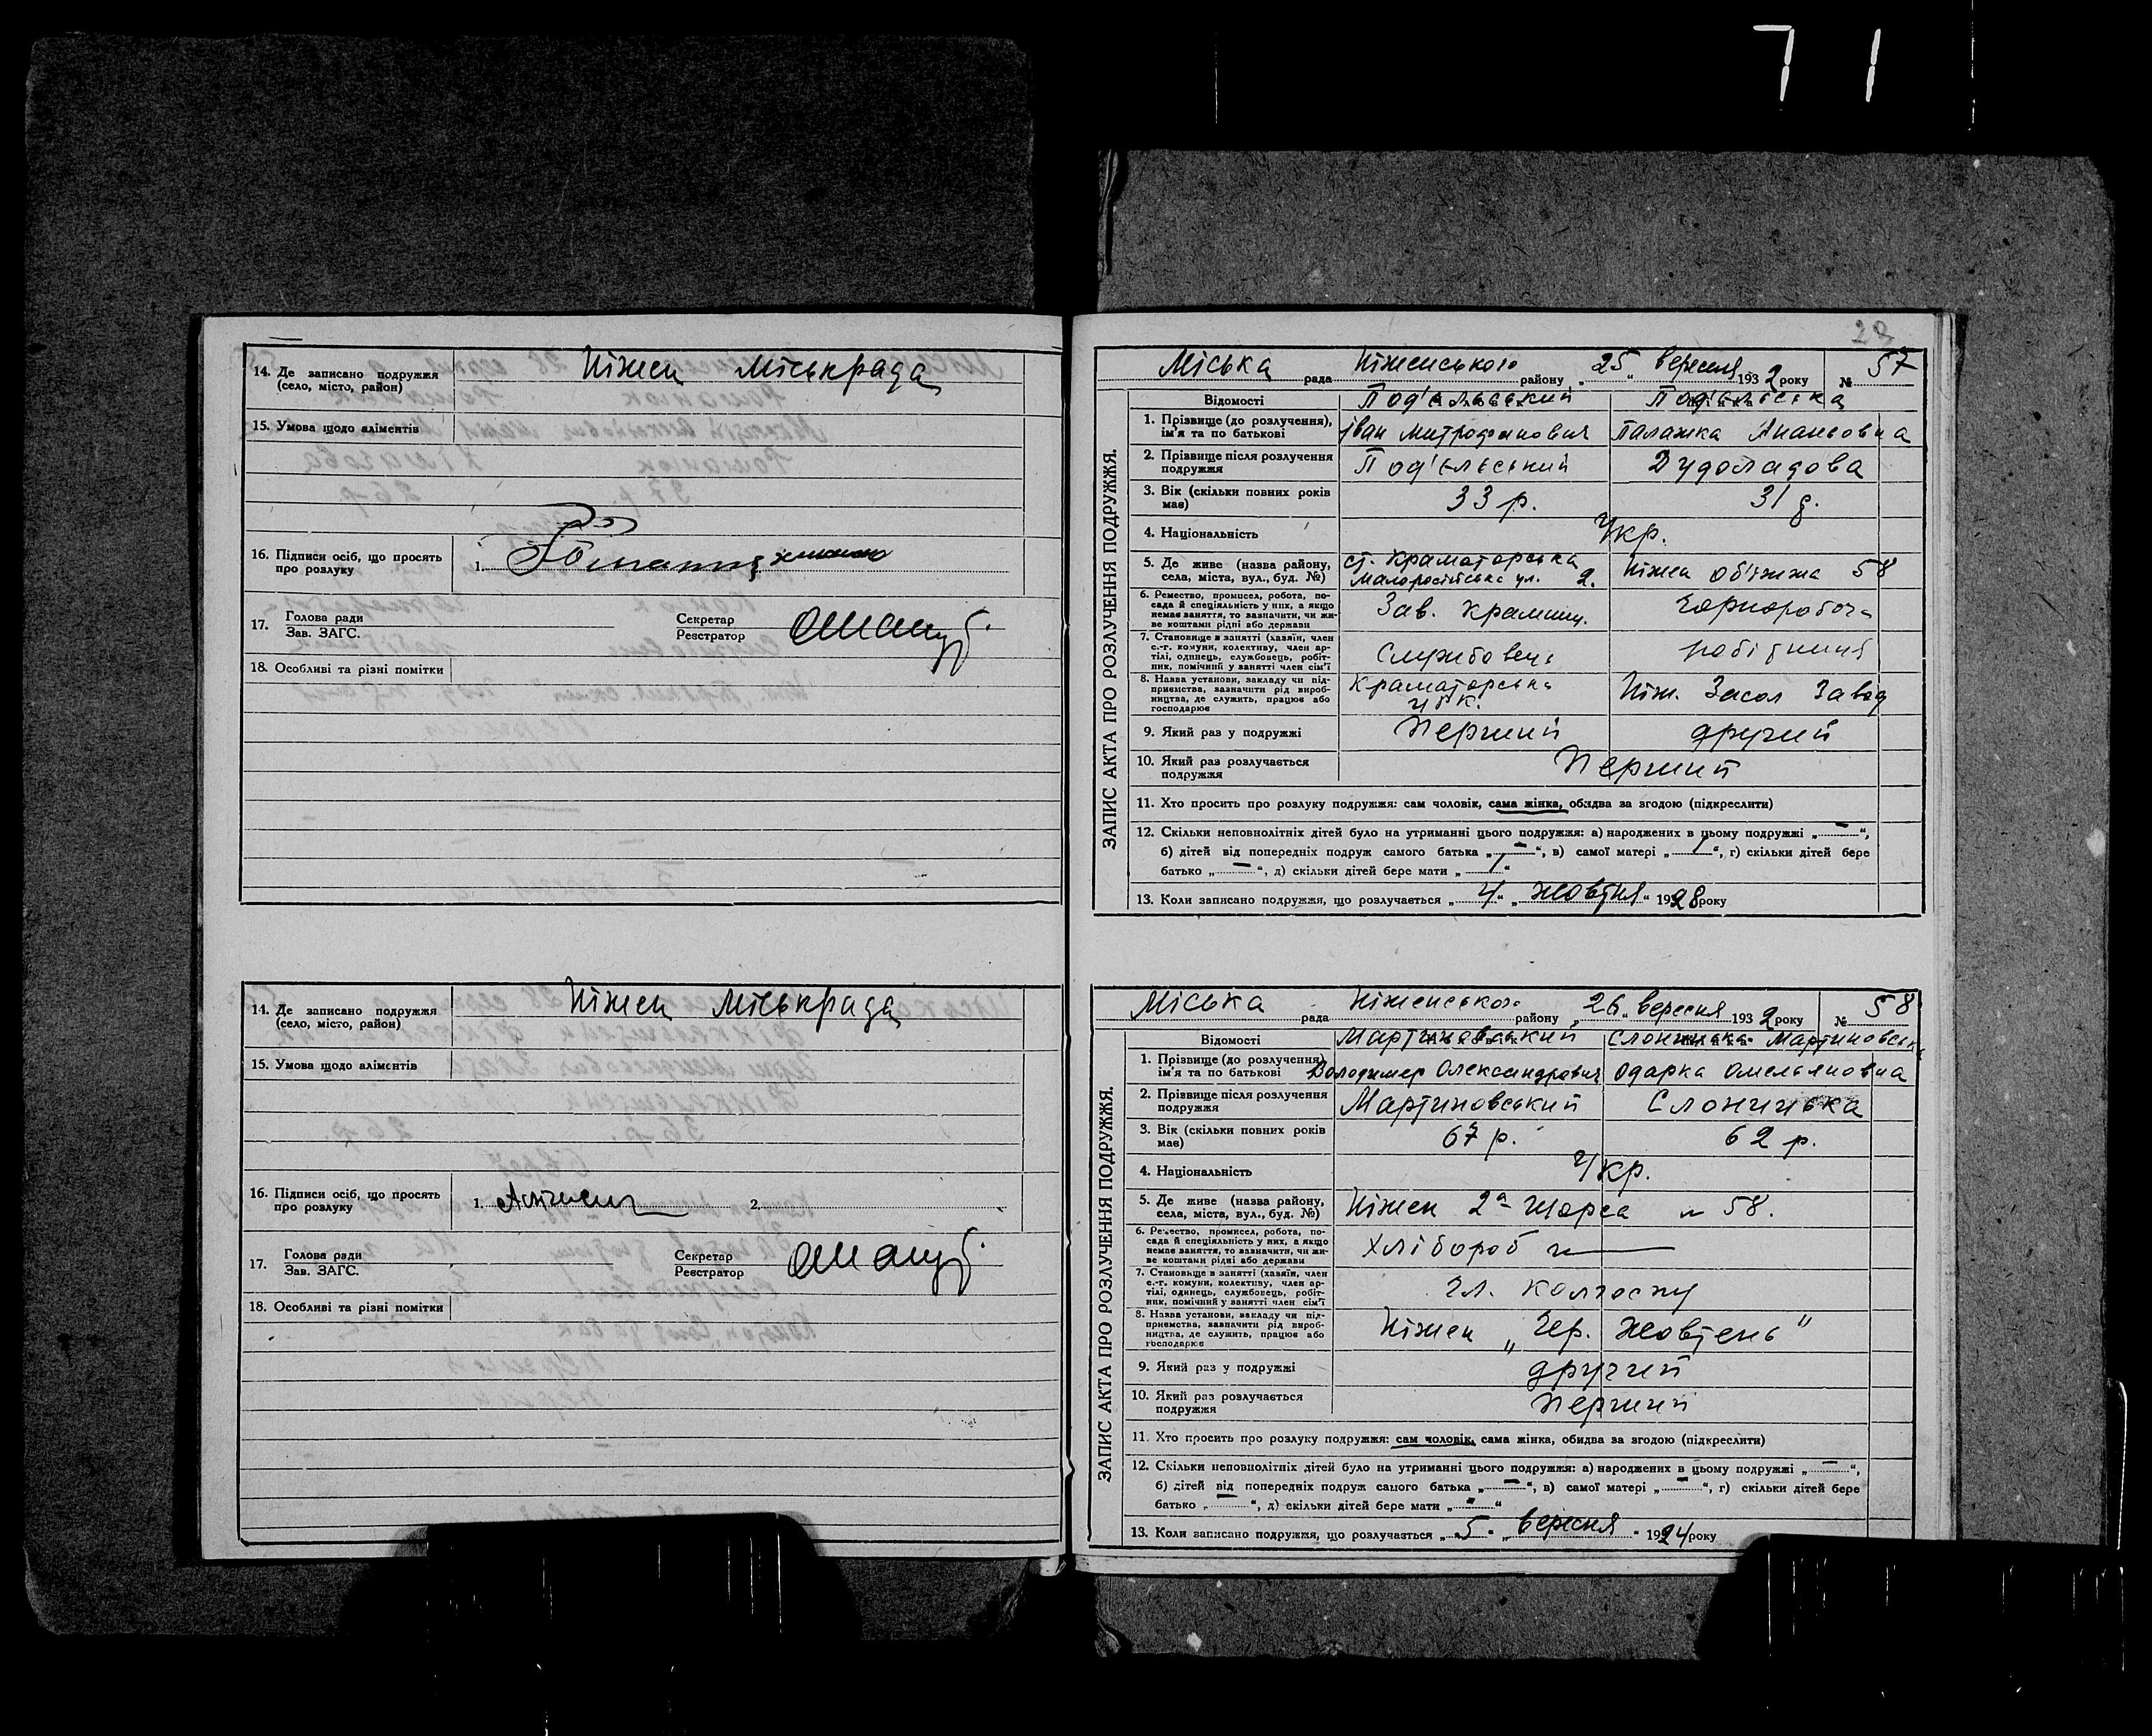 71
14. Де записано подружжя (село, місто, район) Ніжен Міськрада
15. Умова щодо аліментів
16. Підписи осіб, що просять про розлуку 1.
17. Голова ради Зав. ЗАГС. Секретар Реєстратор
18. Особливі та різні помітки
14. Де записано подружжя (село, місто, район) Ніжен Міськрада
15. Умова щодо аліментів
16. Підписи осіб, що просять про розлуку 1. 2.
17. Голова ради Зав. ЗАГС. Секретар Реєстратор
18. Особливі та різні помітки
ЗАПИС АКТА ПРО РОЗЛУЧЕННЯ ПОДРУЖЖЯ.
Міська рада Ніженського району „25“ вересня 1932 року № 57
Відомості Под'єльський Под'єльська
1. Прізвище (до розлучення), ім'я та по батькові Іван Митрофанович Палажка Ананьовна
2. Прізвище після розлучення подружжя Под'єльський Дудоладова
3. Вік (скільки повних років має) 33 р. 31 р.
4. Національність Укр.
5. Де живе (назва району, села, міста, вул., буд. №) ст. Краматорська Малоросійська ул. 2. Ніжен Об'їжжа 58
6. Ремество, промисел, робота, посада й спеціяльність у них, а якщо немає заняття, то зазначити, чи живе коштами рідні або держави Зав. Крамниц. Чорнороб
7. Становище в занятті (хазяїн, член с.-г. комуни, колективу, член артілі, одинець, службовець, робітник, помічний у занятті член сім'ї Службовець робітниця
8. Назва установи, закладу чи підприємства, зазначити рід виробництва, де служить, працює або господарює Краматорська Ніж. Засол Завод
9. Який раз у подружжі Перший другий
10. Який раз розлучається подружжя Перший
11. Хто просить про розлуку подружжя: сам чоловік, сама жінка, обидва за згодою (підкреслити)
12. Скільки неповнолітніх дітей було на утриманні цього подружжя: а) народжених в цьому подружжі „ — “,
б) дітей від попередніх подруж самого батька „ — “, в) самої матері „ 1 “, г) скільки дітей бере
батько „ — “, д) скільки дітей бере мати „ 1 “
13. Коли записано подружжя, що розлучається „ 4 “ „ жовтня “ 1928 року
ЗАПИС АКТА ПРО РОЗЛУЧЕННЯ ПОДРУЖЖЯ.
Міська рада Ніженського району „26“ вересня 1932 року № 58
Відомості Мартиновський Слончинська Мартиновськ
1. Прізвище (до розлучення), ім'я та по батькові Володимер Олександрович Одарка Омельяновна
2. Прізвище після розлучення подружжя Мартиновський
3. Вік (скільки повних років має) 67 р. 62 р.
4. Національність Укр.
5. Де живе (назва району, села, міста, вул., буд. №) Ніжен 2а Щорса № 58.
6. Ремество, промисел, робота, посада й спеціяльність у них, а якщо немає заняття, то зазначити, чи живе коштами рідні або держави Хлібороб
7. Становище в занятті (хазяїн, член с.-г. комуни, колективу, член артілі, одинець, службовець, робітник, помічний у занятті член сім'ї чл. колгоспу
8. Назва установи, закладу чи підприємства, зазначити рід виробництва, де служить, працює або господарює Ніжен „Чер. Жовтень“
9. Який раз у подружжі другий
10. Який раз розлучається подружжя Перший
11. Хто просить про розлуку подружжя: сам чоловік, сама жінка, обидва за згодою (підкреслити)
12. Скільки неповнолітніх дітей було на утриманні цього подружжя: а) народжених в цьому подружжі „ — “,
б) дітей від попередніх подруж самого батька „ — “, в) самої матері „ — “, г) скільки дітей бере
батько „ — “, д) скільки дітей бере мати „ - “
13. Коли записано подружжя, що розлучається „ 5 “ „ вересня “ 1924 року